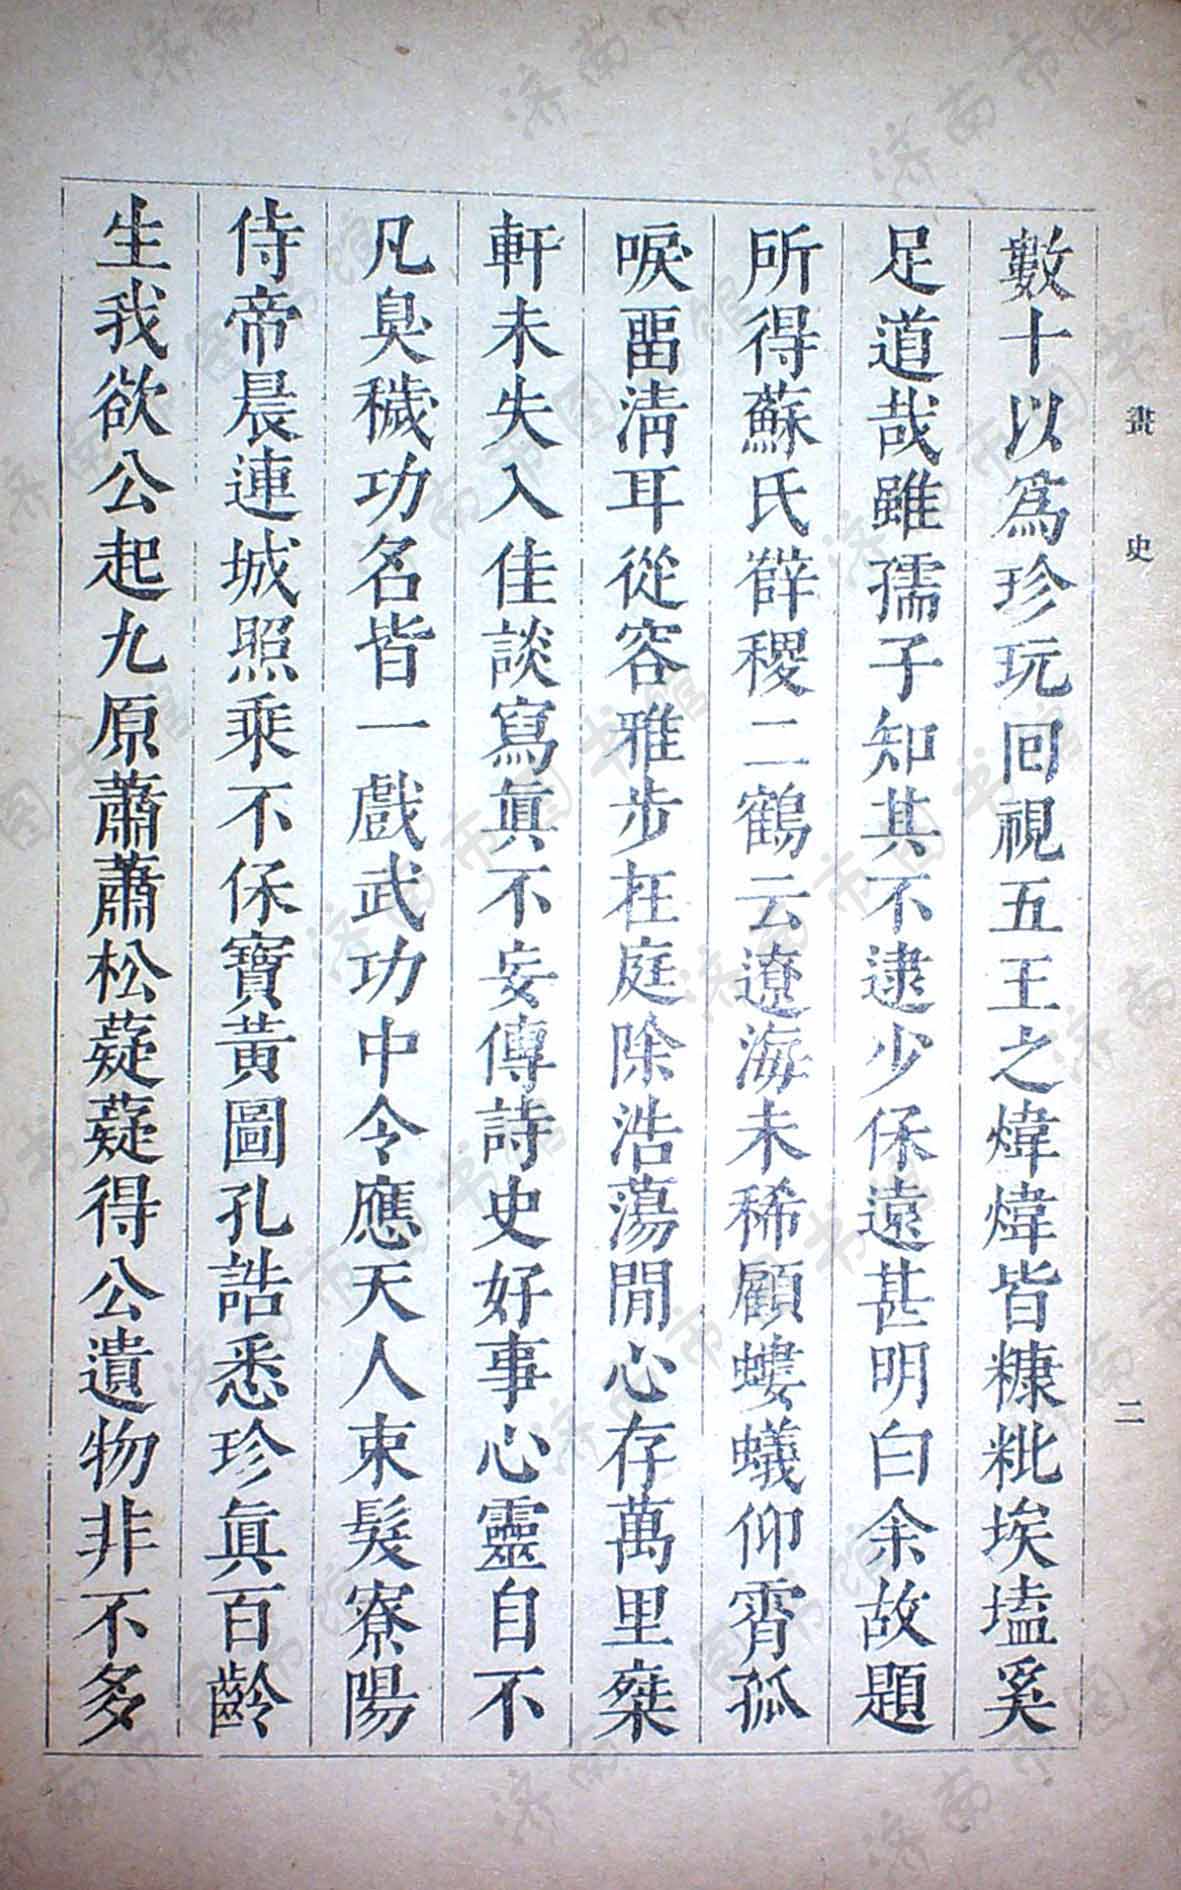 畫史 二
數十以爲珍玩回視五王之煒煒皆糠粃埃壒奚
足道哉雖孺子知其不逮少保遠甚明白余故題
所得蘇氏薛稷二鶴云遼海未稀顧螻蟻仰霄孤
唳畱淸耳從容雅步在庭除浩蕩閒心存萬里乘
軒未失入佳談寫眞不妄傳詩史好事心靈自不
凡臭穢功名皆一戲武功中令應天人束髮寮陽
侍帝晨連城照乘不保寶黃圖孔誥悉珍眞百齡
生我欲公起九原蕭蕭松薿薿得公遺物非不多
济南市图书馆